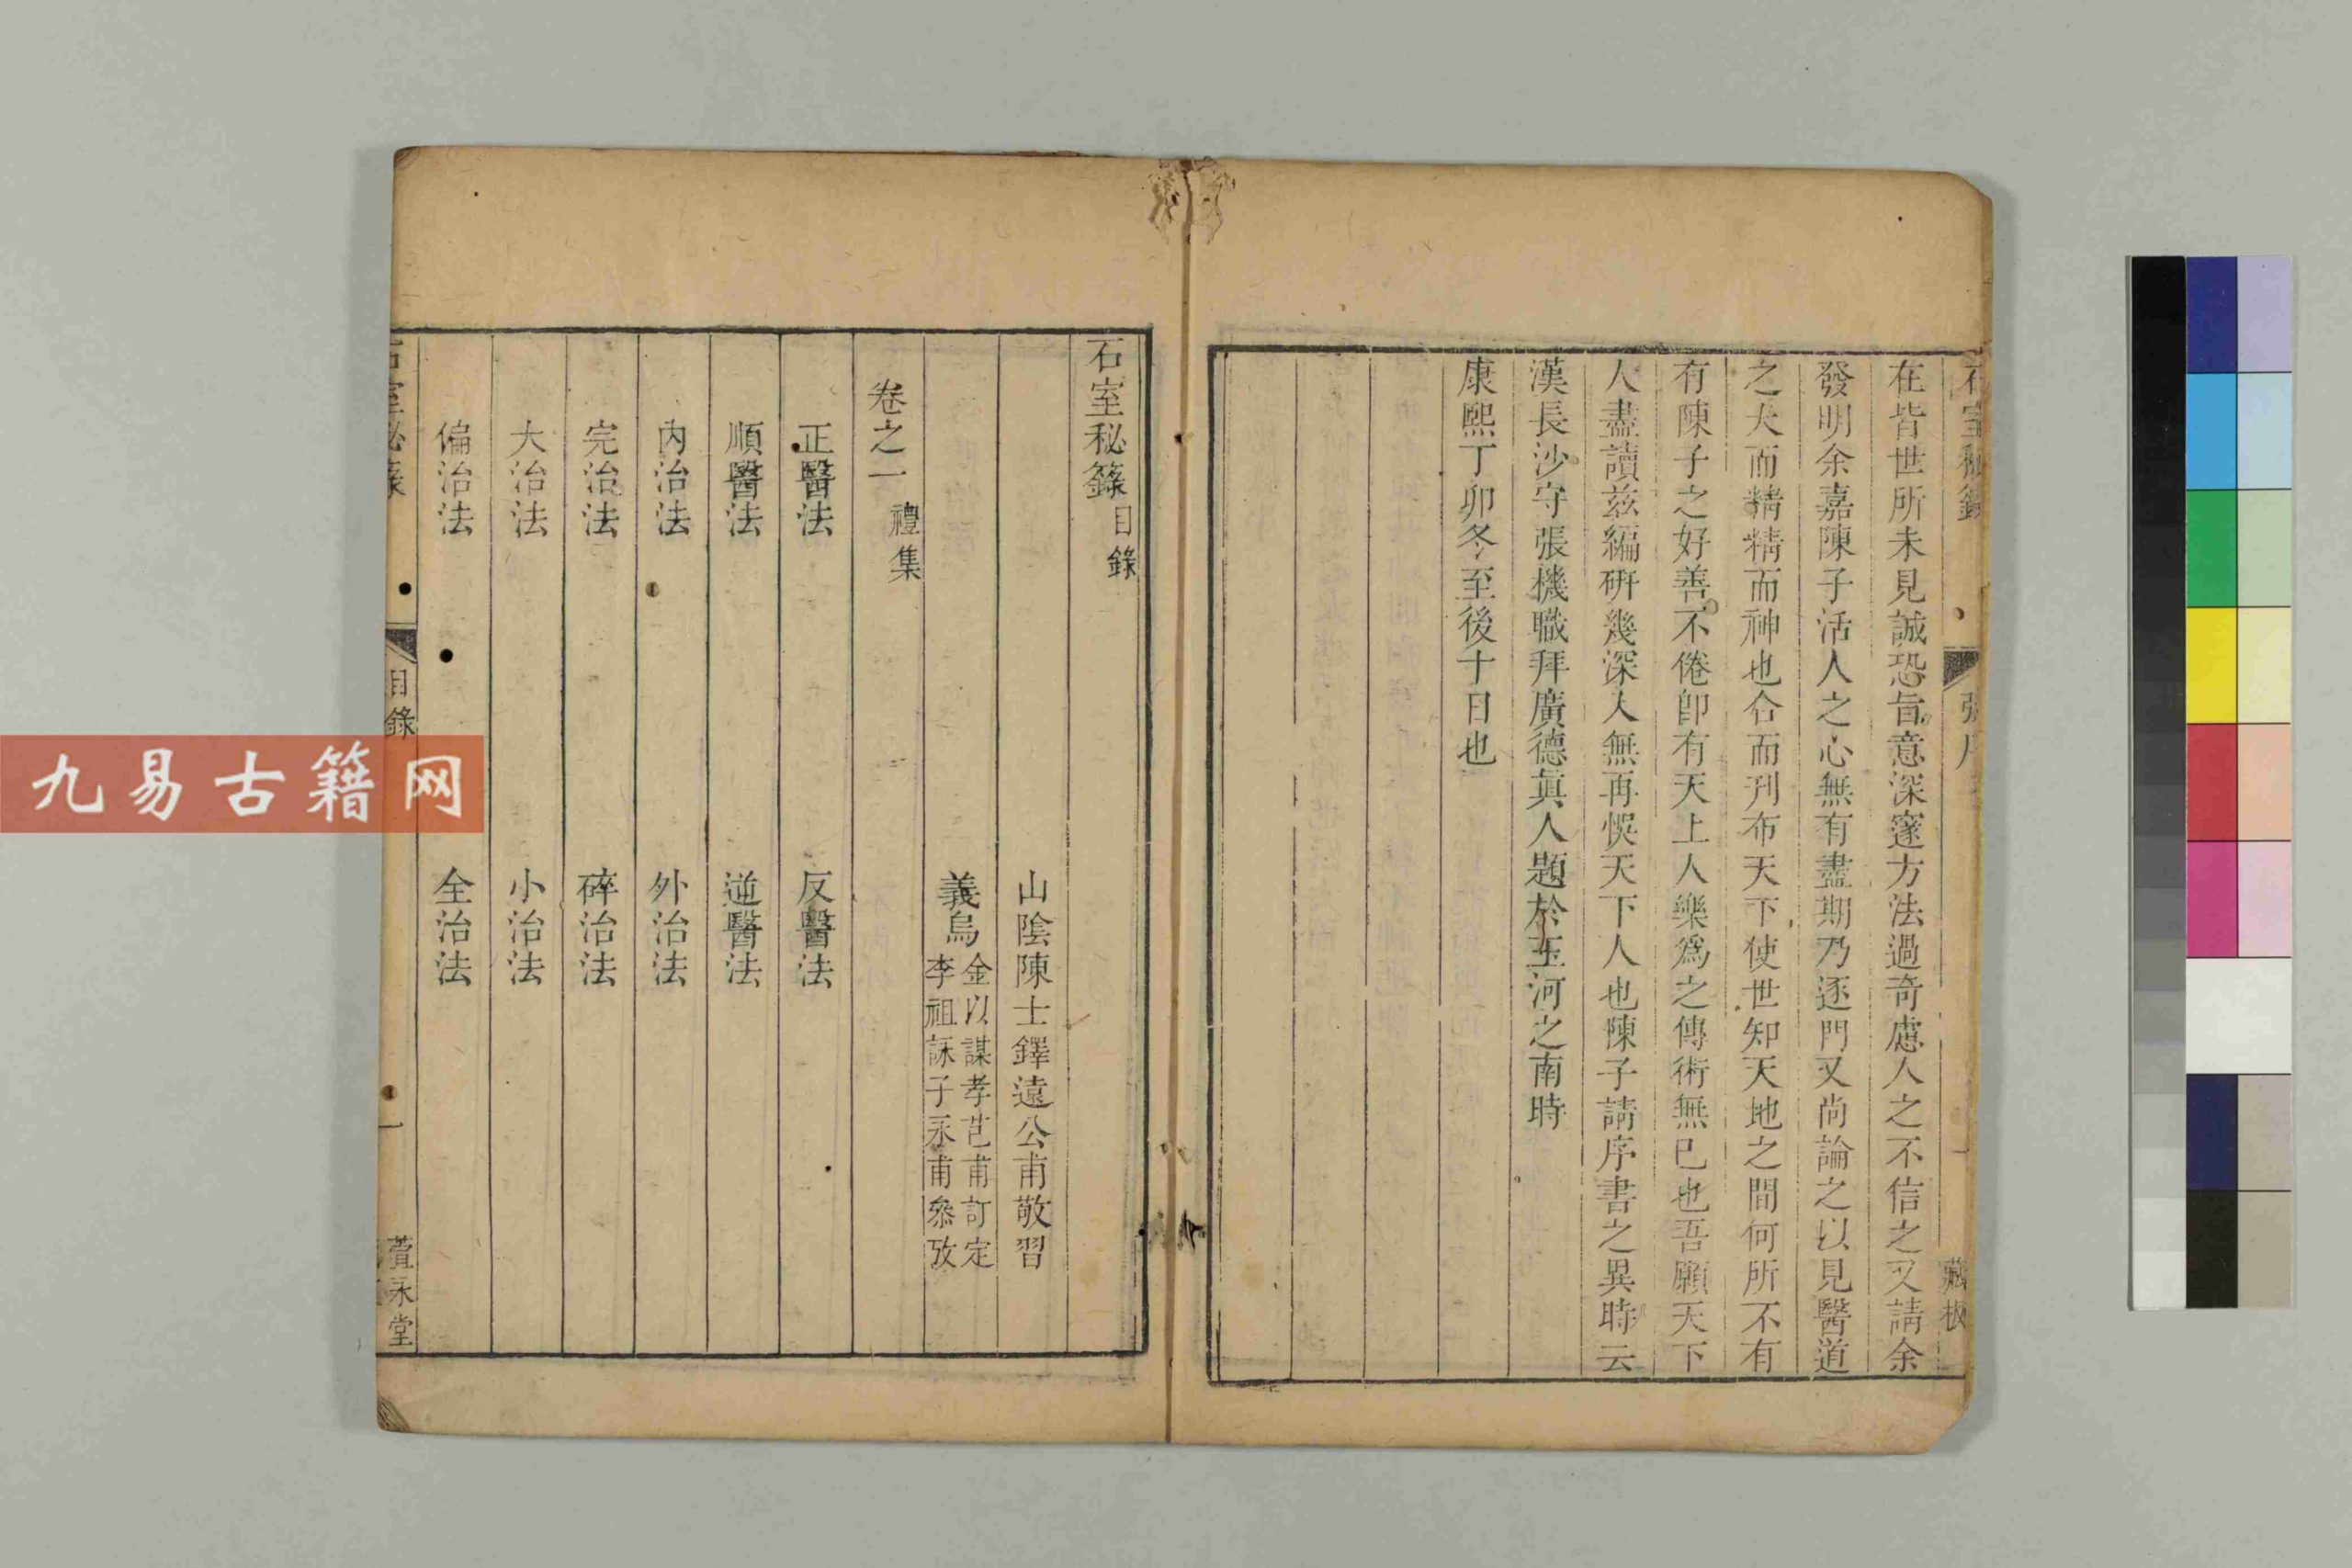 在皆世所未見誠恐旨意深邃方法過奇慮人之不信之又請余
發明余嘉陳子活人之心無有盡期乃逐門又尚論之以見醫道
之大而精精而神也合而刊布天下使世知天地之間何所不有
有陳子之好善不倦卽有天上人樂爲之傳術無已也吾願天下
人盡讀兹編研幾深入無再悞天下人也陳子請序書之異時云
漢長沙守張機職拜廣德眞人題於玉河之南時
康熙丁卯冬至後十日也
石室秘籙目錄
山陰陳士鐸遠公甫敬習
義烏
金以謀孝芑甫訂定
李祖詠子永甫叅攷
卷之一 禮集
正醫法 反醫法
順醫法 逆醫法
內治法 外治法
完治法 碎治法
大治法 小治法
偏治法 全治法
石室秘籙 目錄 一 萱永堂
藏板
九易古籍网